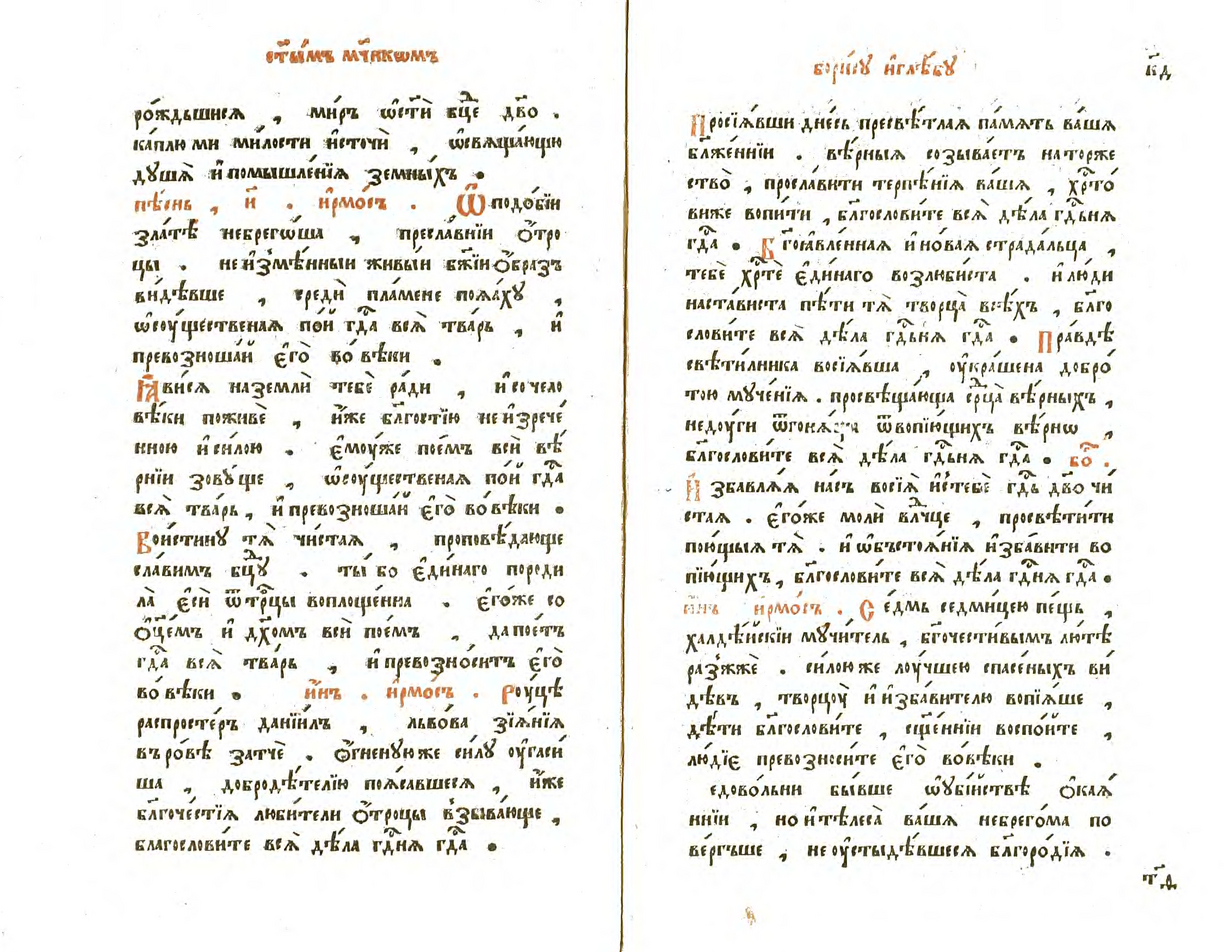 ст҃ы́мъ мч҃нкѡмъ
ро́ждьшиися , ми́ръ ѡ҆чⷭ҇ти́ бцⷣе дв҃о .
ка́плю ми ми́лости и҆сточѝ , ѡ҆свѧща́ющю
дꙋ́шѧ̀ и҆ помышле́нїѧ земны́хъ .
пѣ́снь , и҃ . і҆рмо́съ . Ѿ подо́бїи
зла́тѣ̀ небрего́ша , пресла́внїи ѻ҆́тро
цы . не и҆змѣ́нныи живы́и бж҃їи ѻ҆́бразъ
ви́дѣвше , средѝ пла́мене поѧ́хꙋ ,
ѡ҆соу́щественаѧ по́и гдⷭ҇а всѧ̀ тва́рь , и҆
превозноша́й є҆го̀ во́ вѣки .
Ꙗ҆ви́сѧ на землѝ тебѐ ра́ди , и҆ со чело
вѣ́ки поживѐ , и҆́же бл҃гостїю не и҆зрече́
нною и҆ си́лою . є҆моу́же пое́мъ всѝ вѣ́
рнїи зовꙋ́ще , ѡ҆соу́щественаѧ по́и гдⷭ҇а
всѧ̀ тва́рь , и҆ превозноша́й є҆го̀ во́ вѣки .
Вои́стинꙋ тѧ̀ чи́стаѧ , проповѣ́дающе
сла́вимъ бцⷣꙋ . ты́ бо є҆ди́наго породи
ла̀ є҆сѝ ѿ трⷪ҇цы воплоще́нна . є҆го́же со
ѻ҆ц҃е́мъ и҆ дх҃омъ всѝ пое́мъ , да пое́тъ
гдⷭ҇а всѧ̀ тва́рь , и҆ превозно́ситъ є҆го̀
во́ вѣки . и҆́нъ . і҆рмо́съ . Роу́цѣ
распросте́ръ данїи́лъ , льво́ва зїѧ́нїѧ
въ ро́вѣ затчѐ . ѻ҆́гненꙋю же си́лꙋ оу҆гаси́
ша , добродѣ́телїю поѧ́савшесѧ , и҆́же
бл҃гоче́стїѧ люби́тели ѻ҆́троцы взыва́юще ,
благослови́те всѧ̀ дѣ́ла гдⷭ҇нѧ гдⷭ҇а .
бори́сꙋ и҆ глѣ́бꙋ
к҃д
Просїѧ́вши дне́сь пресвѣ́тлаѧ па́мѧть ва́шѧ
бл҃же́ннїи . вѣ́рныѧ созыва́етъ на торже
ство̀ , просла́вити терпѣ́нїѧ ва́шѧ , хрⷭ҇то́
ви же вопи́ти , бл҃гослови́те всѧ̀ дѣ́ла гдⷭ҇ьнѧ
гдⷭ҇а . Б҃гоꙗвле́ннаѧ и҆ но́ваѧ страда́льца ,
тебѐ хрⷭ҇тѐ є҆ди́наго возлюби́ста . и҆ лю́ди
наста́виста пѣ́ти тѧ̀ творца̀ всѣ́хъ , бл҃го
слови́те всѧ̀ дѣ́ла гдⷭ҇ьнѧ гдⷭ҇а . Пра́вдѣ
свѣти́лника восїѧ́вша , оу҆кра́шена добро́
тою мꙋче́нїѧ . просвѣща́юща срⷣца вѣ́рныхъ ,
недоу́ги ѿ вопїю́щихъ вѣ́рнѡ ,
бл҃гослови́те всѧ̀ дѣ́ла гдⷭ҇ьнѧ гдⷭ҇а . бо҃ .
И҆збавлѧ́ѧ на́съ восїѧ̀ и҆с тебѐ гдⷭ҇ь дв҃о чи
стаѧ . є҆го́же молѝ влⷣчце , просвѣти́ти
пою́щыѧ тѧ̀ . и҆ ѡ҆бьстоѧ́нїѧ и҆зба́вити во
пїю́щихъ , бл҃гослови́те всѧ̀ дѣ́ла гдⷭ҇нѧ гдⷭ҇а .
и҆́нъ і҆рмо́съ . Се́дмь седми́цею пе́щь ,
халдѣ́йскїи мꙋчи́тель , бг҃очести́вымъ лю́тѣ
разжжѐ . си́лою же лоу́чшею спасе́ныхъ ви́
дѣвъ , творцоу̀ и҆ и҆зба́вителю вопїѧ́ше ,
дѣ́ти бл҃гослови́те , сщ҃е́ннїи воспо́ите ,
лю́дїе превозноси́те є҆го̀ во́ вѣки .
едово́льни бы́вше ѡ҆ оу҆бі́йствѣ ѻ҆каѧ́
ннїи , но и҆ тѣлеса̀ ва́шѧ небрего́ма по
ве́ргъше , не оу҆стыдѣ́вшесѧ бл҃горо́дїѧ .
т҃д